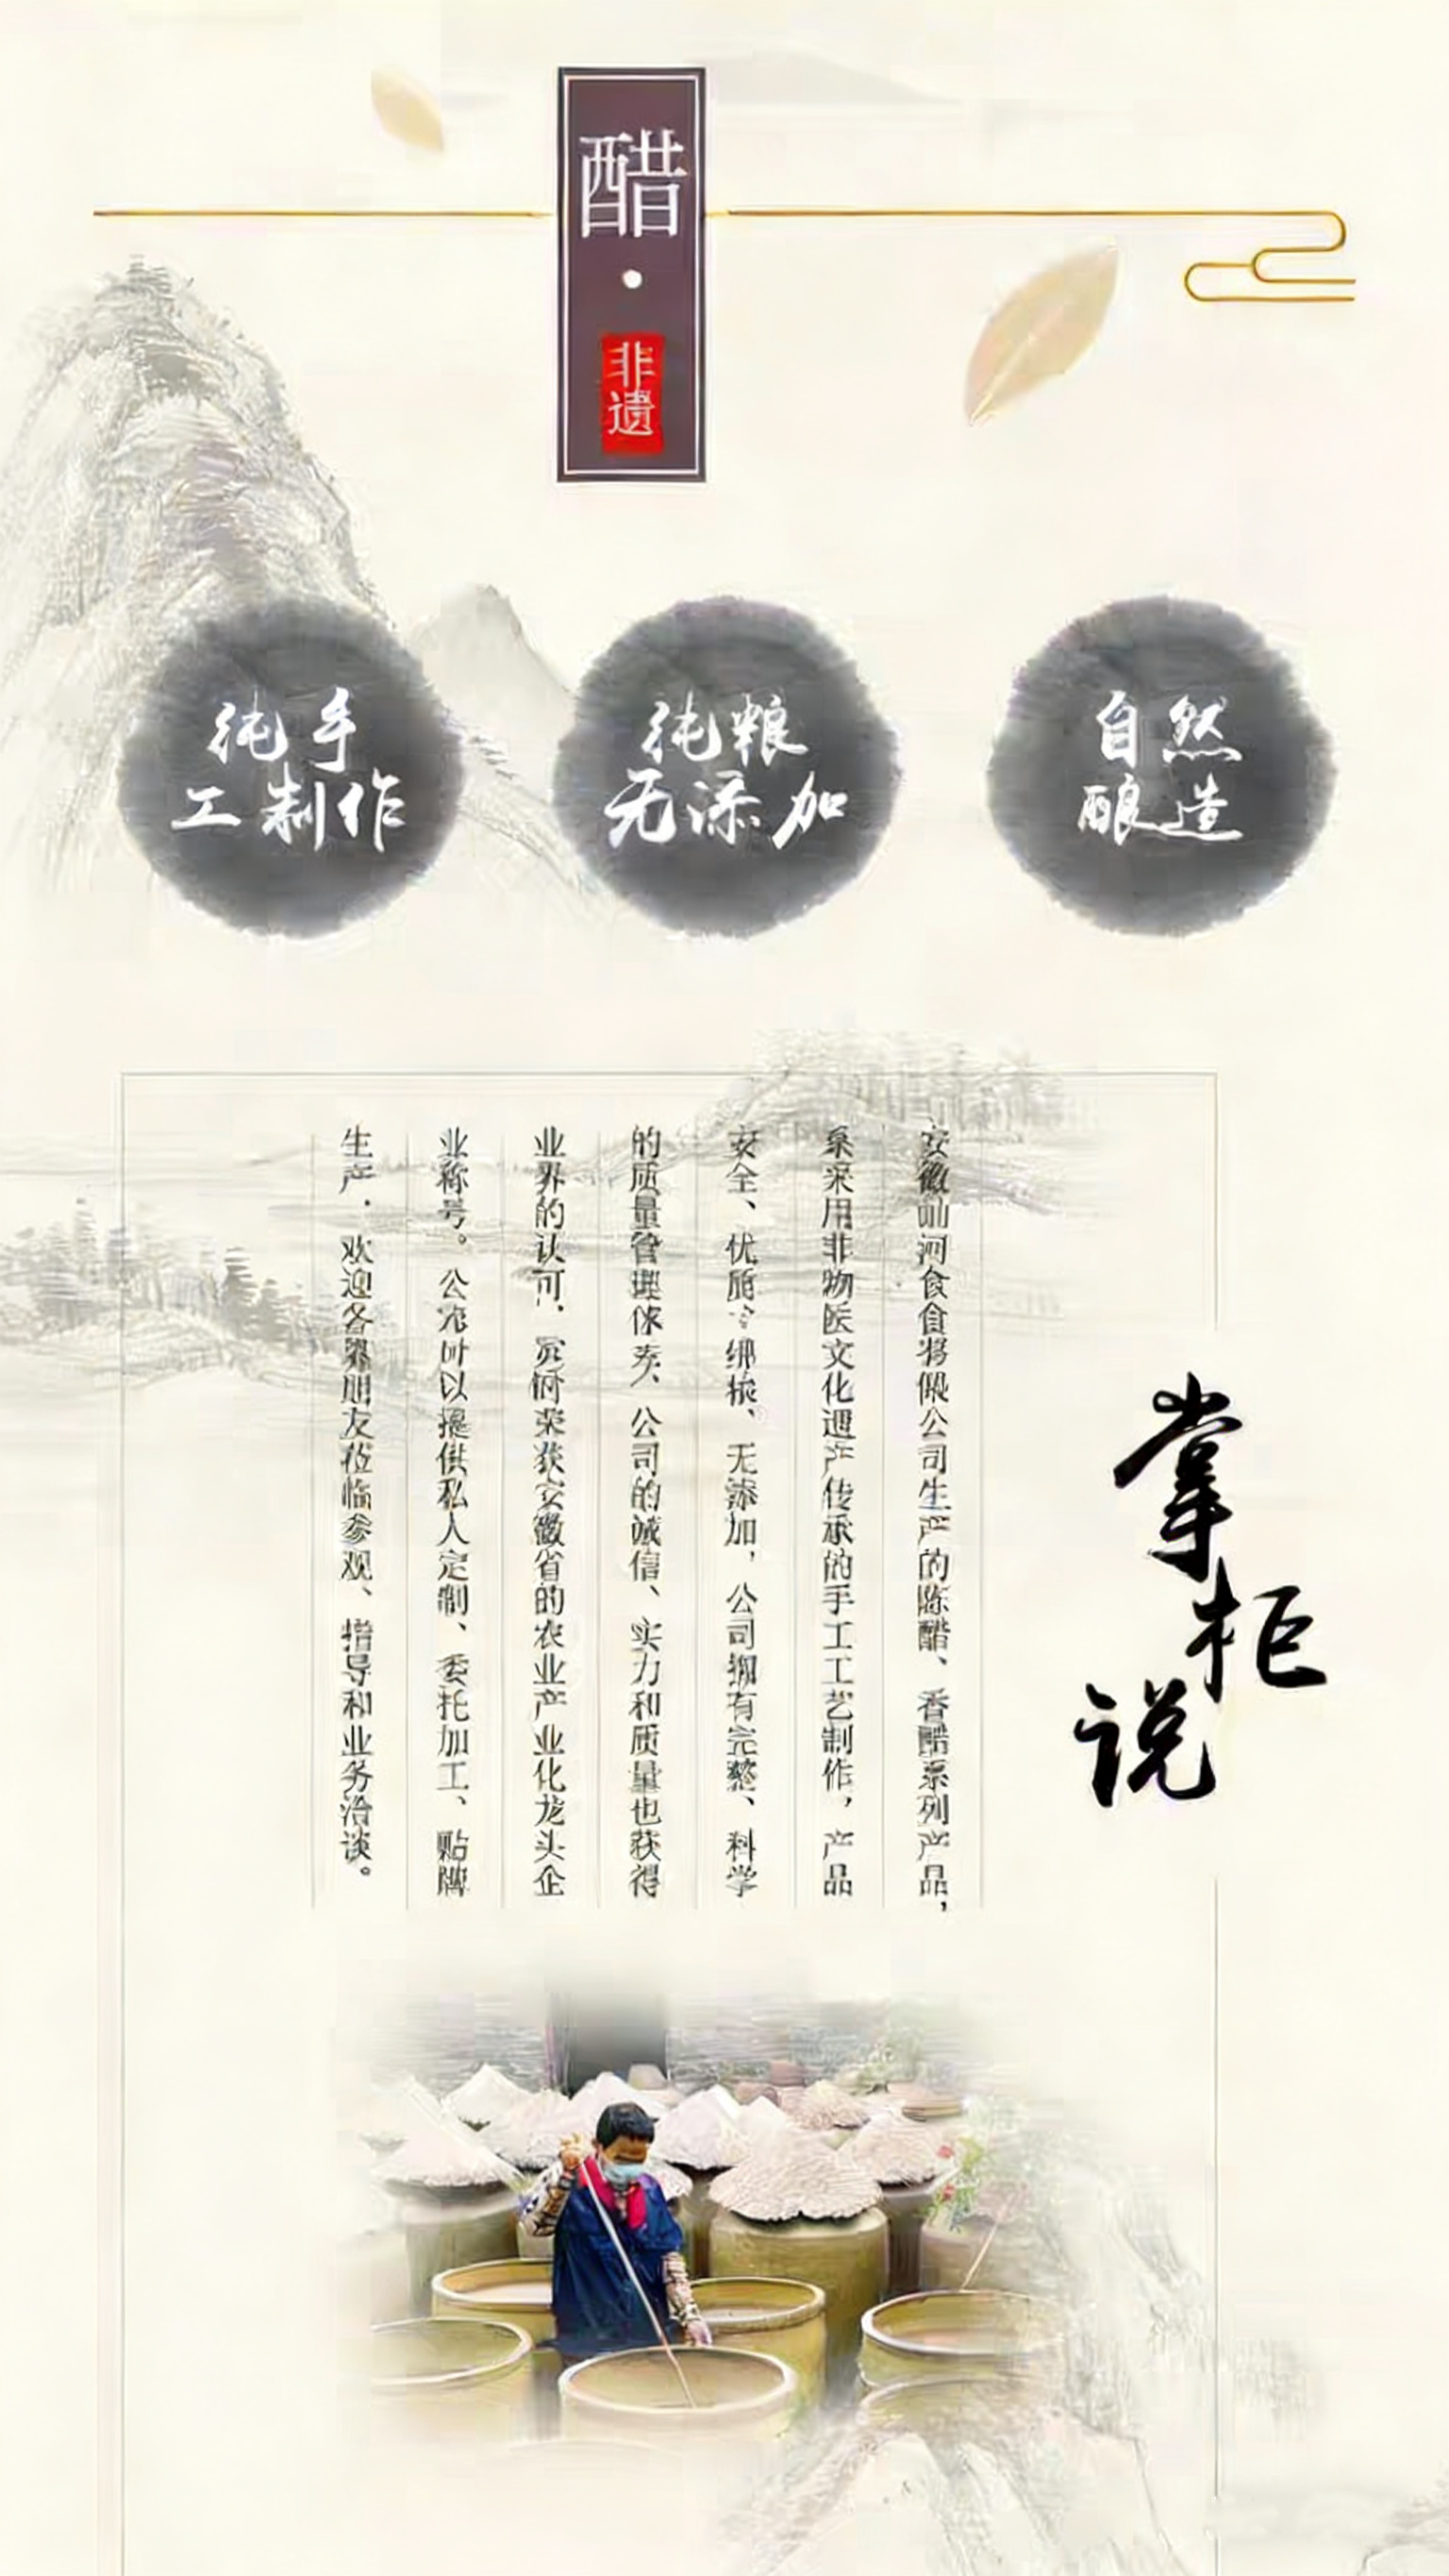 醋
·
非遗
纯手
工制作
纯粮
无添加
自然
酿造
掌柜说
安徽 河食食 公司生产的陈醋、香醋系列产品,
采用非物 文化遗产传承的手工工艺制作,产品
安全、优质、绿 、无添加,公司拥有完整、科学
的质量管理体系、公司的诚信、实力和质量也获得
业界的认可, 荣获安徽省的农业产业化龙头企
业称号。公 可以提供私人定制、委托加工、贴牌
生产.欢迎各界朋友莅临参观、指导和业务洽谈。